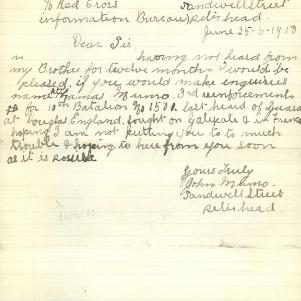 To Red Cross Sandwell Street
information Bureau, Peterhead.
June 25-6-1918
Dear Sir.
having not heard from
my Brother for twelve months I would be
pleased if you would make enquiries
name James Munro. 3rd reinforcements
for 10th Batalion No 1501. last heard of
at England, fought on & in France
hoping I am not putting you to to much
trouble & hoping to here from you soon
as it is
Yours Truly
John Munro.
Sandwell Street
Peterhead.